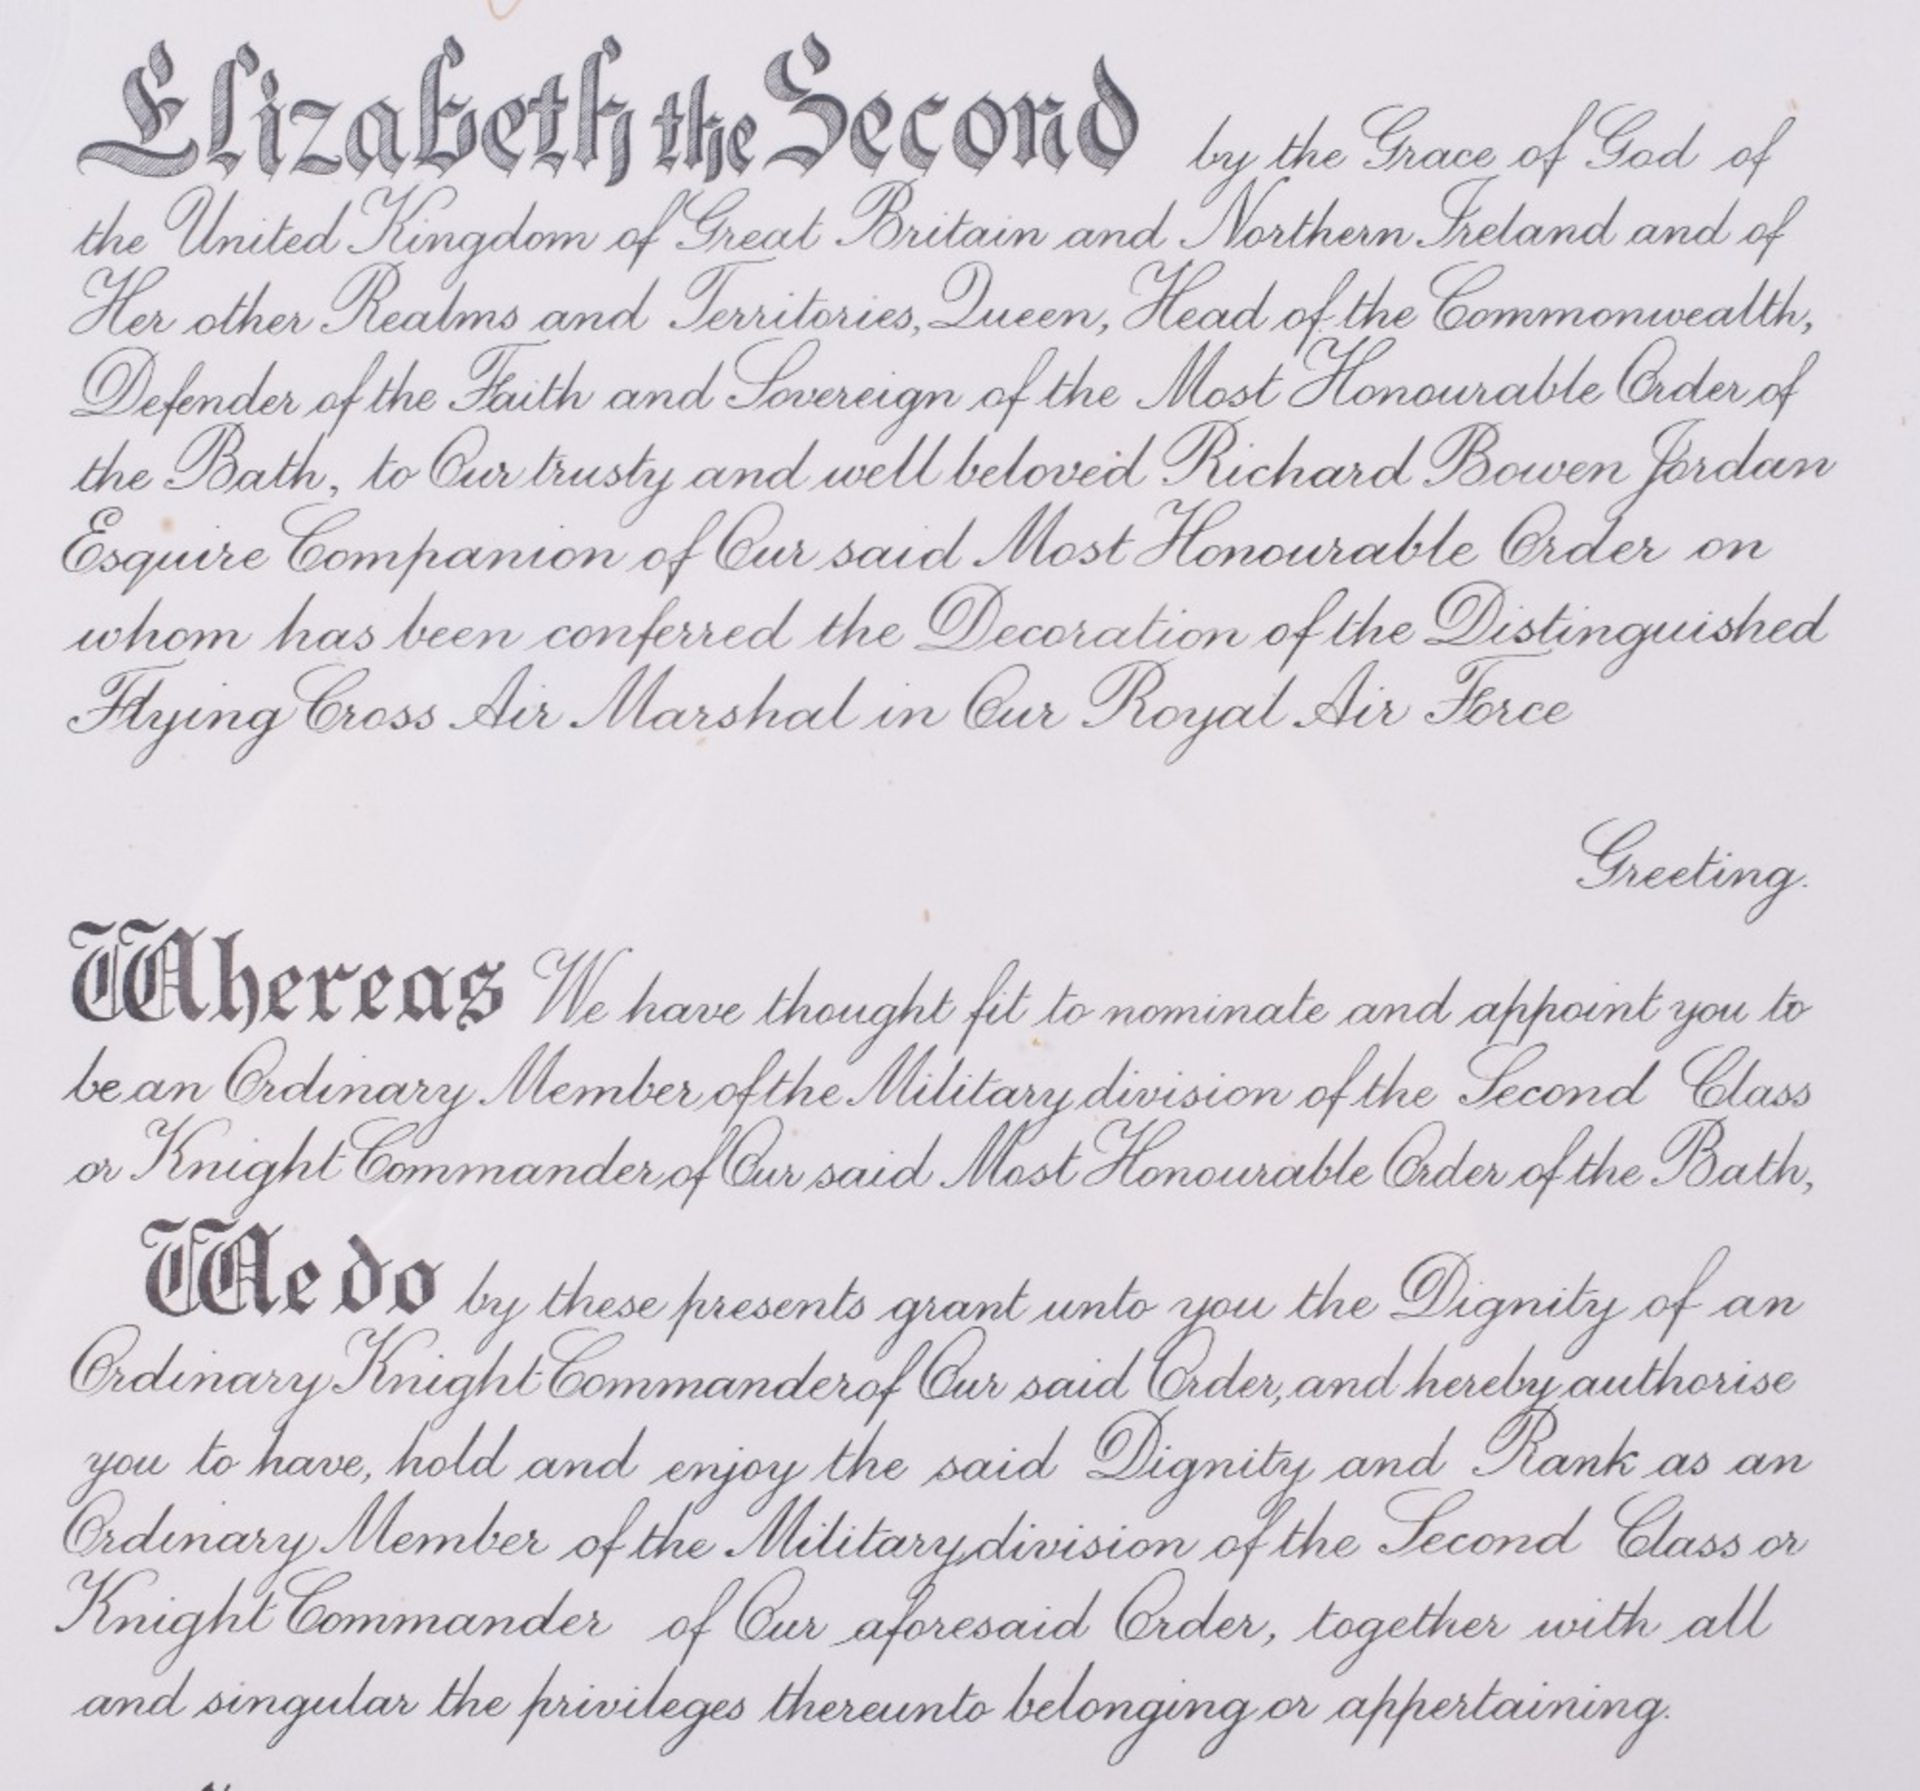 Elizabeth the Second by the Grace of God of
the United Kingdom of Great Britain and Northern Ireland and of
Her other Realms and Territories, Queen, Head of the Commonwealth,
Defender of the Faith and Sovereign of the Most Honourable Order of
the Bath, to Our trusty and well beloved Richard Bowen Jordan
Esquire Companion of Our said Most Honourable Order on
whom has been conferred the Decoration of the Distinguished
Flying Cross Air Marshal in Our Royal Air Force
Greeting.
Whereas We have thought fit to nominate and appoint you to
be an Ordinary Member of the Military division of the Second Class
or Knight Commander of Our said Most Honourable Order of the Bath,
We do by these presents grant unto you the Dignity of an
Ordinary Knight Commander of Our said Order, and hereby authorise
you to have, hold and enjoy the said Dignity and Rank as an
Ordinary Member of the Military division of the Second Class or
Knight Commander of Our aforesaid Order, together with all
and singular the privileges thereunto belonging or appertaining.